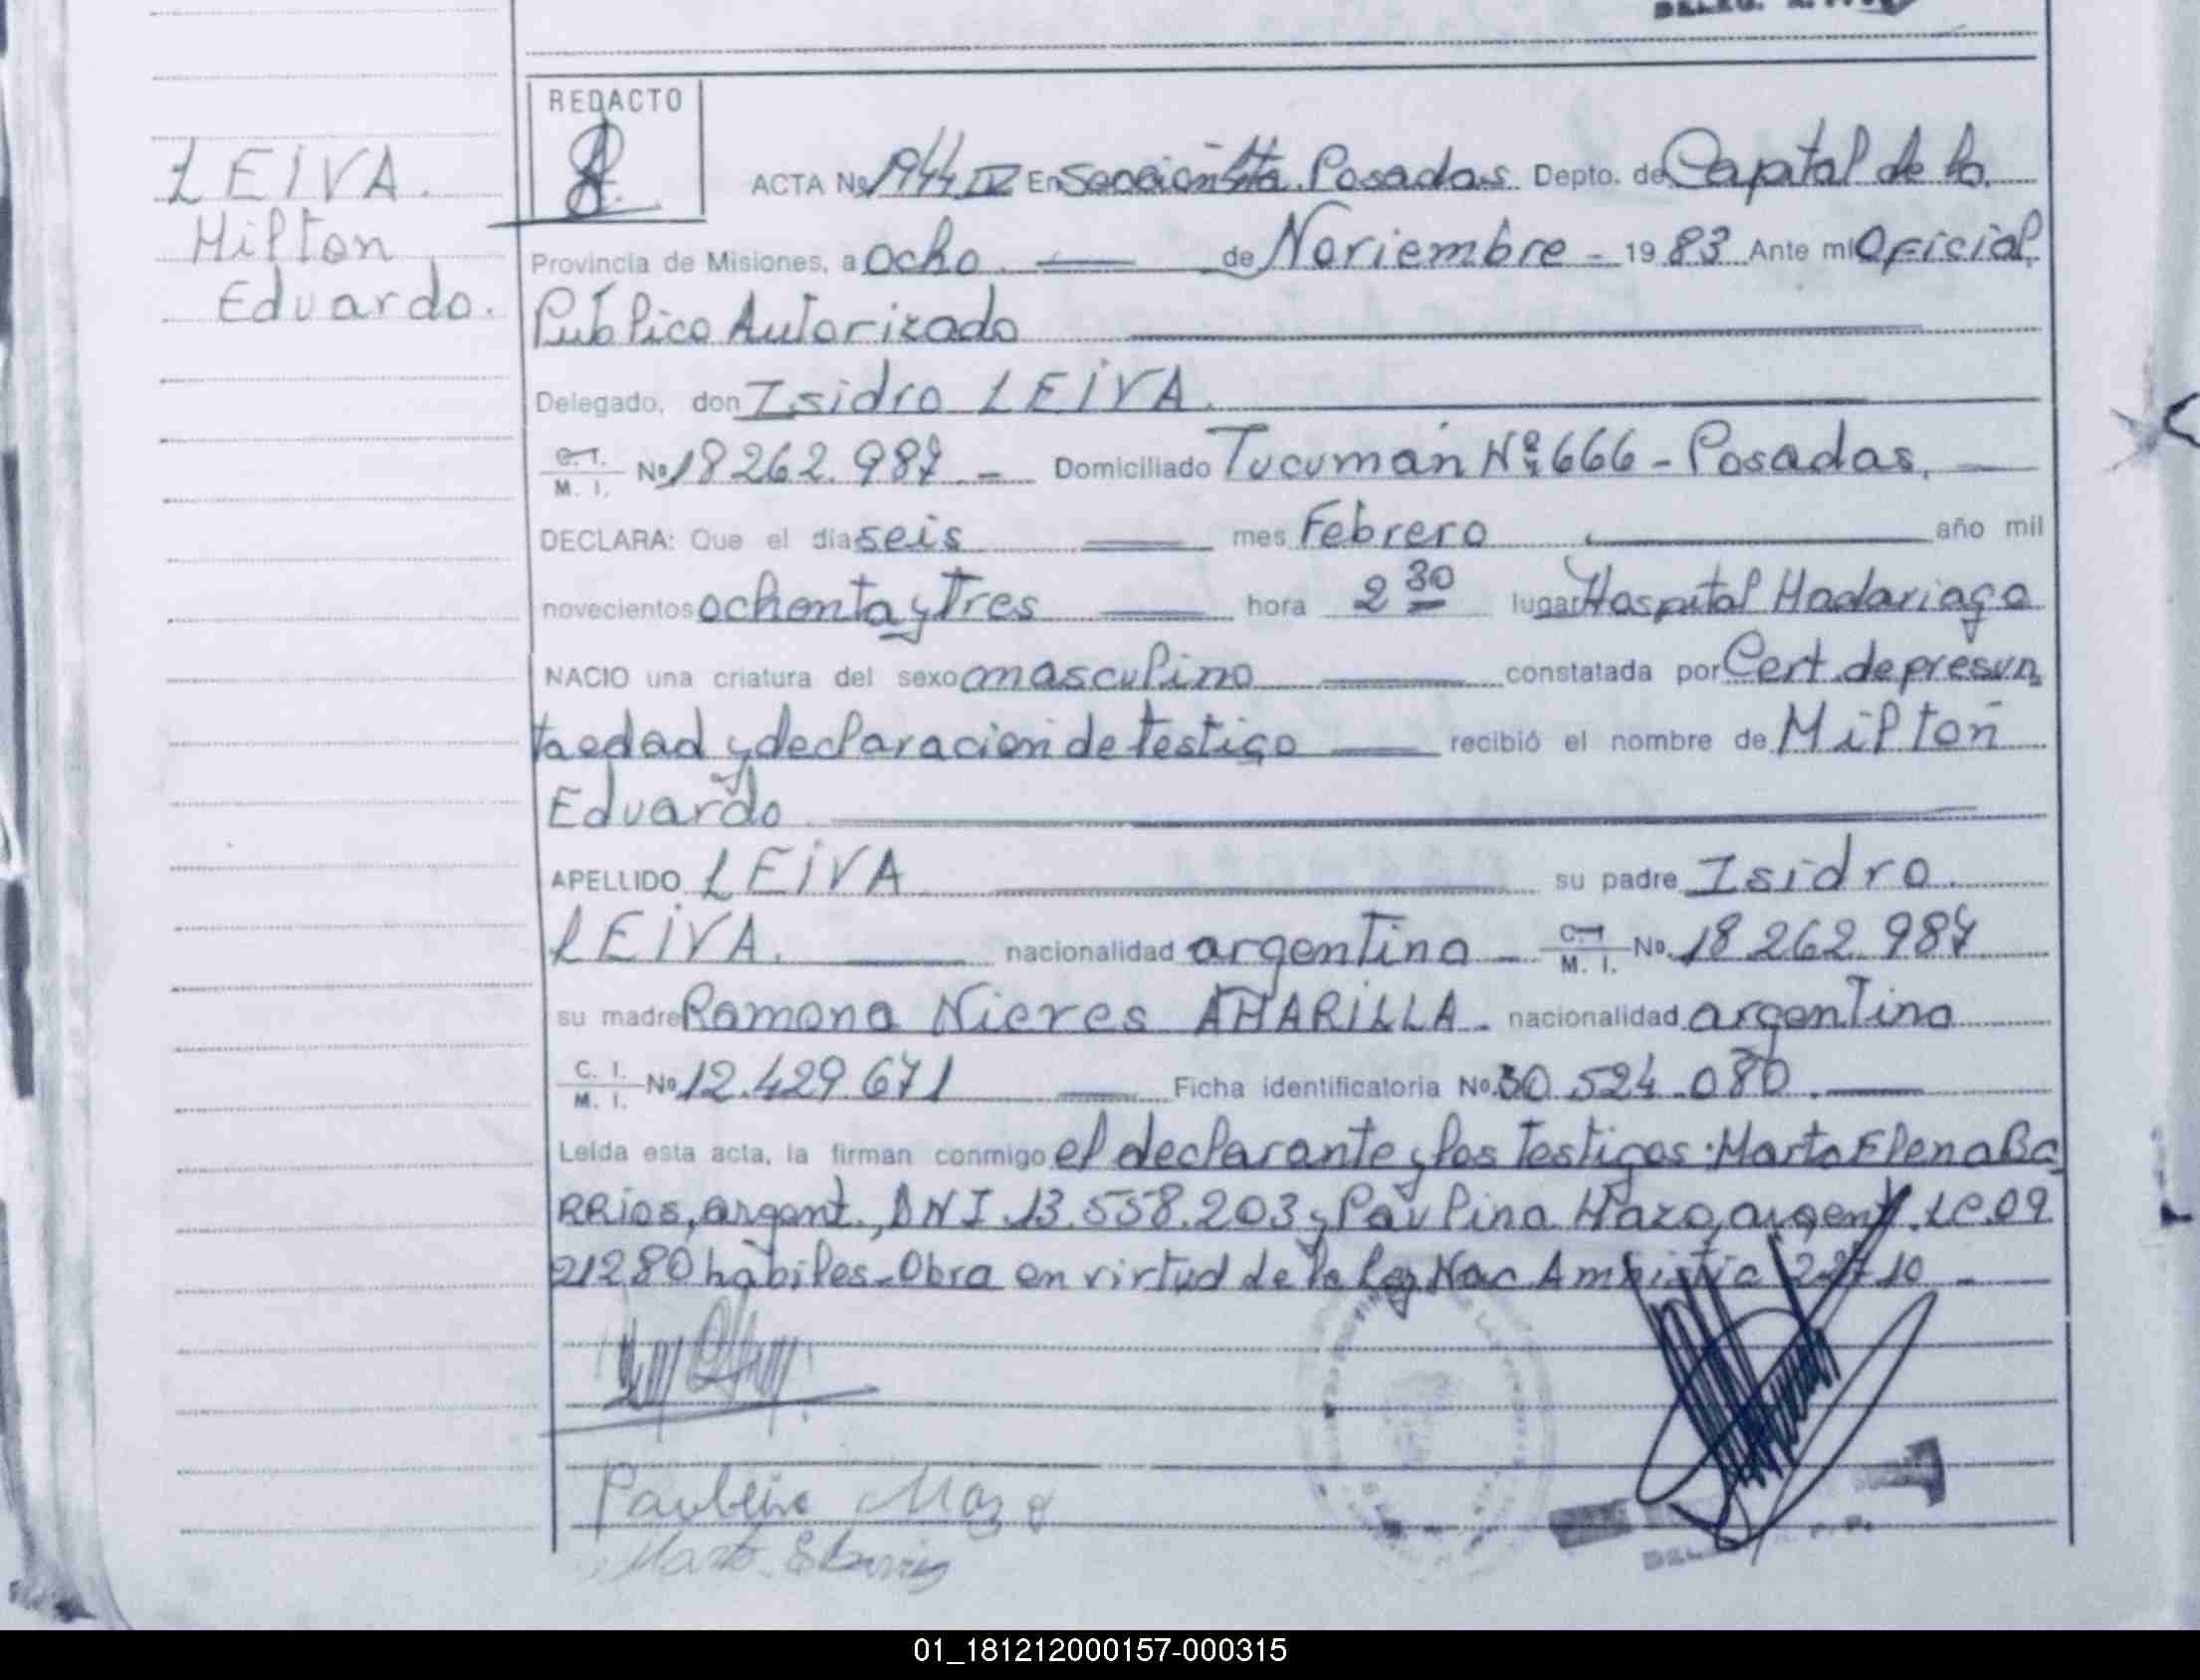 REDACTO
LEIVA.
Milton
Eduardo.
ACTA Nº 1944 IV En Sección 4ta. Posadas. Depto. de Capital de la
Provincia de Misiones, a ocho de Noviembre - 19 83 Ante mi Oficial
Público Autorizado
Delegado, don Isidro LEIVA.
C. I.
M. I. Nº 18 262.987 - Domiciliado Tucumán Nº 666 - Posadas,
DECLARA: Que el día seis mes Febrero año mil
novecientos ochenta y Tres hora 2 30 lugar Hospital Madariaga
NACIO una criatura del sexo masculino constatada por Cert. de presun
ta edad y declaración de testigo recibió el nombre de Milton
Eduardo
APELLIDO LEIVA su padre Isidro
LEIVA. nacionalidad argentino - C. I.
M. I. Nº 18 262.987
su madre Ramona Nieves AMARILLA. nacionalidad argentina
C. I.
M. I. Nº 12.429.671 Ficha identificatoria Nº 30 524.080.
Leída esta acta, la firman conmigo el declarante y los Testigos: Marta Elena Ba
RRios, argent., DNI.13.558.203 y Paulina Mazo, argent. LC.09
21280 hábiles - Obra en virtud de la Ley Nac Amnistía 22710 -
Paulina Mazo
Marta E Barrios
01_181212000157-000315